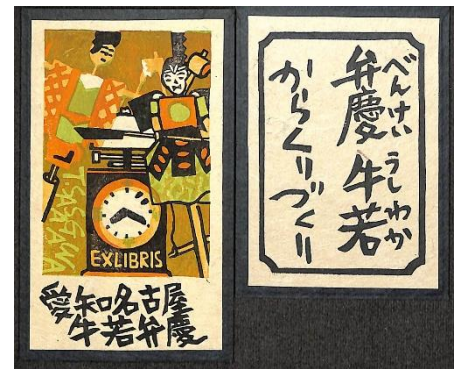 T. SASAGAWA
EXLIBRIS
愛知名古屋
牛若弁慶
べんけい うしわか
弁慶 牛若
からくりづくり